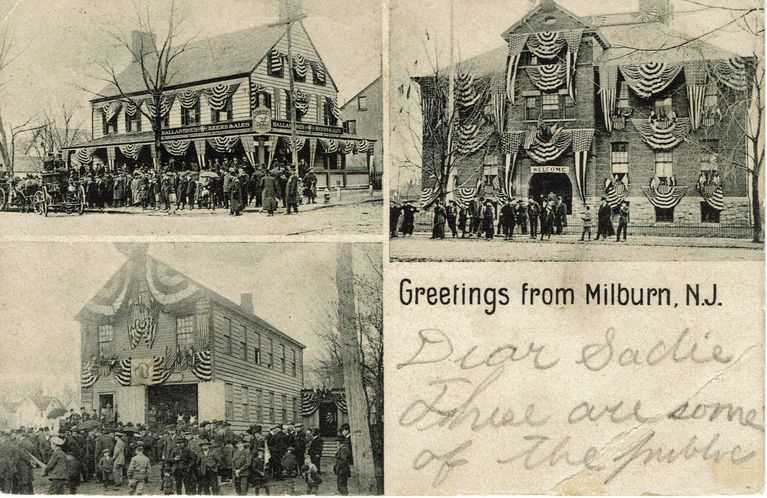 BALLANTINE'S BEERS & ALES
BALLANTINE'S BEERS
WELCOME
Greetings from Milburn, N.J.
Dear Sadie
These are some
of the public